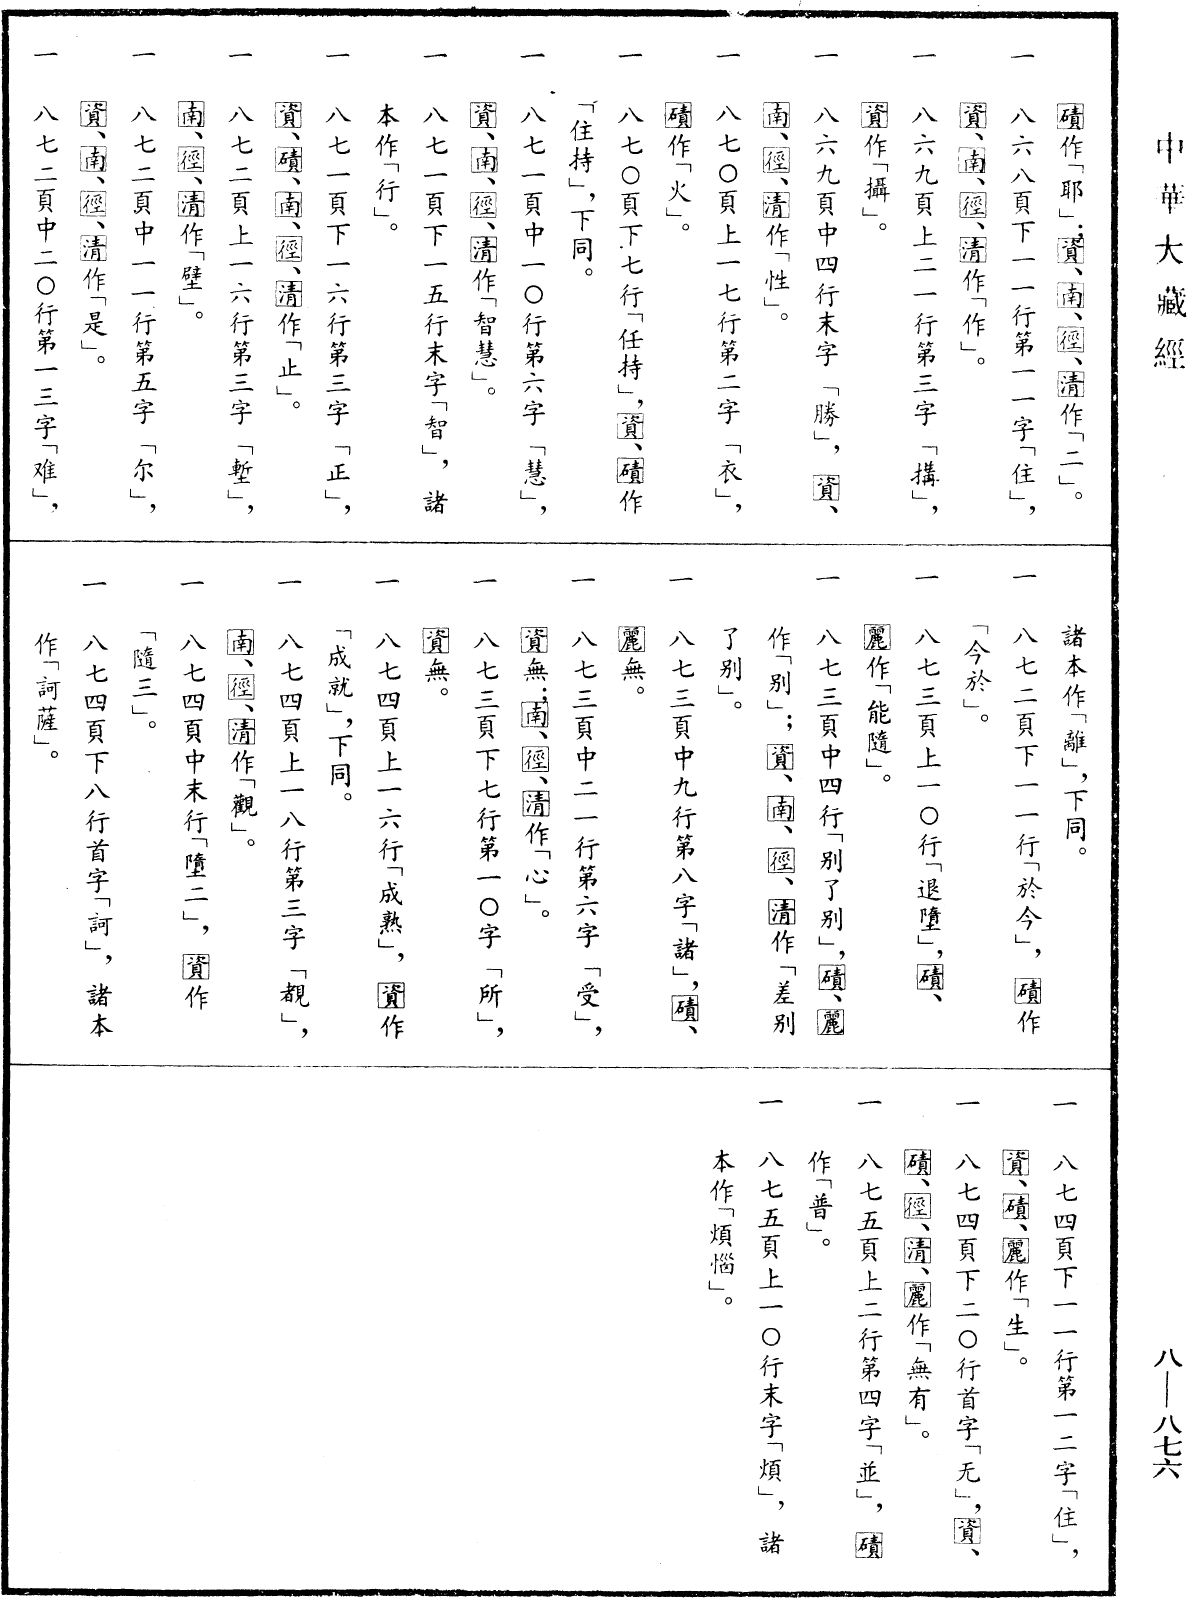 中華大藏經
磧作「耶」；資、南、徑、清作「二」。
一　八六八頁下一一行第一一字「住」，
資、南、徑、清作「作」。
一　八六九頁上二一行第三字「搆」，
資作「攝」。
一　八六九頁中四行末字「勝」，資、
南、徑、清作「性」。
一　八七〇頁上一七行第二字「衣」，
磧作「火」。
一　八七〇頁下七行「任持」，資、磧作
「住持」，下同。
一　八七一頁中一〇行第六字「慧」，
資、南、徑、清作「智慧」。
一　八七一頁下一五行末字「智」，諸
本作「行」。
一　八七一頁下一六行第三字「正」，
資、磧、南、徑、清作「止」。
一　八七二頁上一六行第三字「塹」，
南、徑、清作「壁」。
一　八七二頁中一一行第五字「尔」，
資、南、徑、清作「是」。
一　八七二頁中二〇行第一三字「难」，
諸本作「離」，下同。
一　八七二頁下一一行「於今」，磧作
「今於」。
一　八七三頁上一〇行「退墮」，磧、
麗作「能隨」。
一　八七三頁中四行「别了别」，磧、麗
作「别」；資、南、徑、清作「差别
了别」。
一　八七三頁中九行第八字「諸」，磧、
麗無。
一　八七三頁中二一行第六字「受」，
資無；南、徑、清作「心」。
一　八七三頁下七行第一〇字「所」，
資無。
一　八七四頁上一六行「成熟」，資作
「成就」，下同。
一　八七四頁上一八行第三字「覩」，
南、徑、清作「觀」。
一　八七四頁中末行「墮二」，資作
「隨三」。
一　八七四頁下八行首字「訶」，諸本
作「訶薩」。
一　八七四頁下一一行第一二字「住」，
資、磧、麗作「生」。
一　八七四頁下二〇行首字「无」，資、
磧、徑、清、麗作「無有」。
一　八七五頁上二行第四字「並」，磧
作「普」。
一　八七五頁上一〇行末字「煩」，諸
本作「煩惱」。
八—八七六